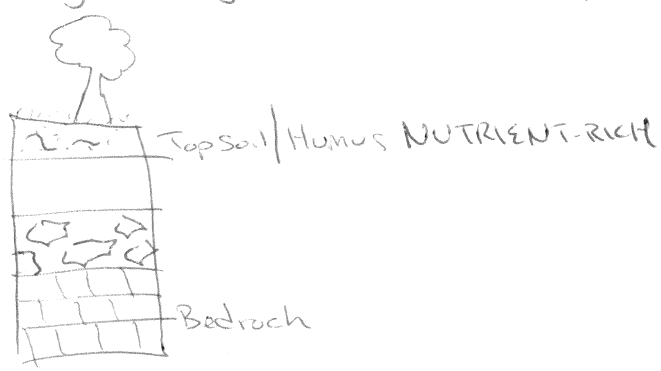 Topsoil/Humus NUTRIENT-RICH
Bedrock